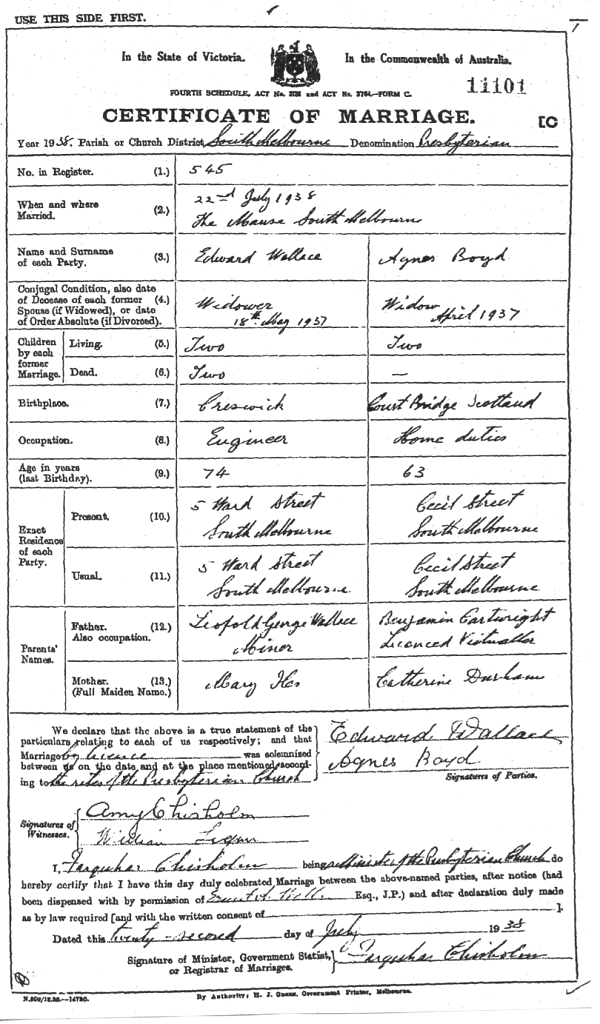 USE THIS SIDE FIRST.
In the State of Victoria. In the Commonwealth of Australia.
FOURTH SCHEDULE, ACT No. and ACT No. 3764.—FORM C. 11101
CERTIFICATE OF MARRIAGE. [C
Year 1938. Parish or Church District South Melbourne Denomination Presbyterian
No. in Register. (1.) 545
When and where Married. (2.) 22nd July 1938
The Manse South Melbourne
Name and Surname of each Party. (3.) Edward Wallace Agnes Boyd
Conjugal Condition, also date
of Decease of each former (4.) Widower Widow
Spouse (if Widowed), or date 18th May 1937 April 1937
of Order Absolute (if Divorced).
Children by each former Marriage. Living. (5.) Two Two
Dead. (6.) Two —
Birthplace. (7.) Creswick Court Bridge Scotland
Occupation. (8.) Engineer Home duties
Age in years (last Birthday). (9.) 74 63
Exact Residence of each Party.
Present. (10.) 5 Ward Street Cecil Street
South Melbourne South Melbourne
Usual. (11.) 5 Ward Street Cecil Street
South Melbourne South Melbourne
Parents' Names.
Father. (12.) Leopold George Wallace Benjamin Cartwright
Also occupation. Minor Licenced Victualler
Mother. (13.) Mary Catherine Durham
(Full Maiden Name.)
We declare that the above is a true statement of the
particulars relating to each of us respectively; and that
Marriage by licence was solemnized
between us on the date and at the place mentioned accord-
ing to the rites of the Presbyterian Church
Edward Wallace
Agnes Boyd
Signatures of Parties.
Signatures of Witnesses. Amy Chisholm
William
I, Farquhar Chisholm being a Minister of the Presbyterian Church do
hereby certify that I have this day duly celebrated Marriage between the above-named parties, after notice (had
been dispensed with by permission of Esq., J.P.) and after declaration duly made
as by law required [and with the written consent of ].
Dated this twenty-second day of July 1938
Signature of Minister, Government Statist,
or Registrar of Marriages. Farquhar Chisholm
By Authority: H. J. Green, Government Printer, Melbourne.